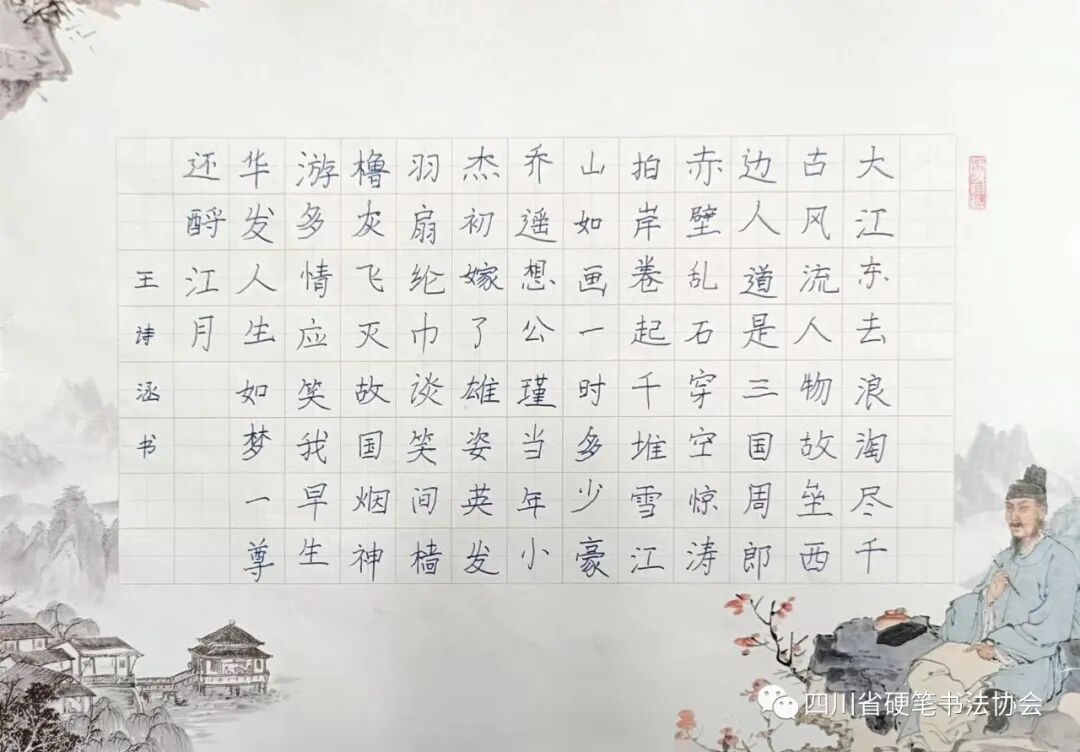 大江东去浪淘尽千
古风流人物故垒西
边人道是三国周郎
赤壁乱石穿空惊涛
拍岸卷起千堆雪江
山如画一时多少豪
乔遥想公瑾当年小
杰初嫁了雄姿英发
羽扇纶巾谈笑间樯
橹灰飞灭故国烟神
游多情应笑我早生
华发人生如梦一尊
还酹江月
王诗涵书
四川省硬笔书法协会